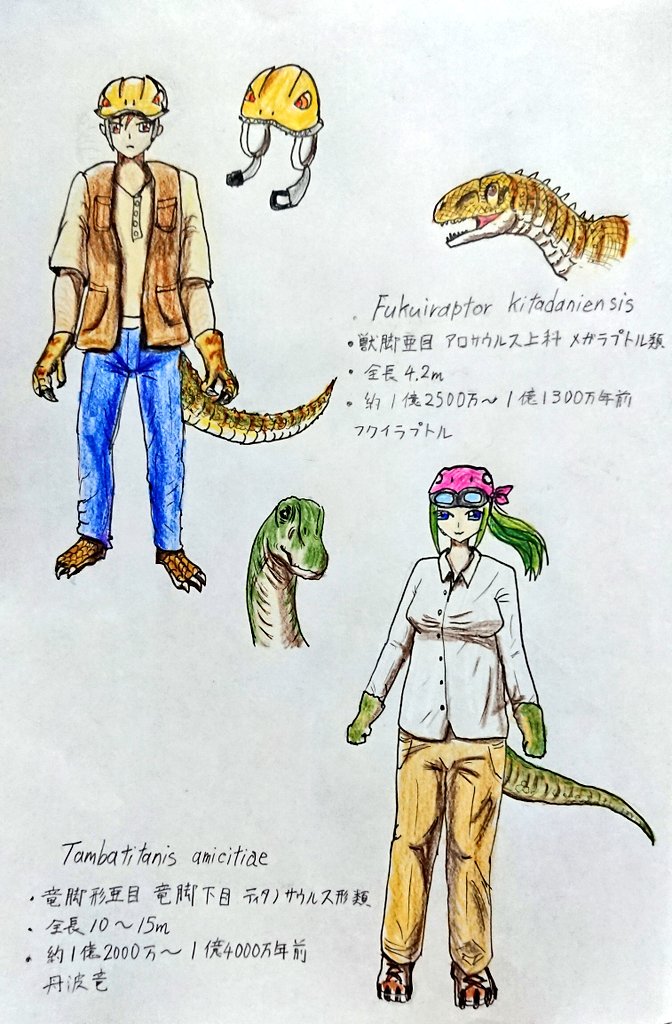 Fukuiraptor kitadaniensis
・獣脚亜目 アロサウルス上科 メガラプトル類
・全長 4.2m
・約 1億2500万〜1億1300万年前
フクイラプトル
Tambatitanis amicitiae
・竜脚形亜目 竜脚下目 ティタノサウルス形類
・全長10〜15m
・約1億2000万〜1億4000万年前
丹波竜